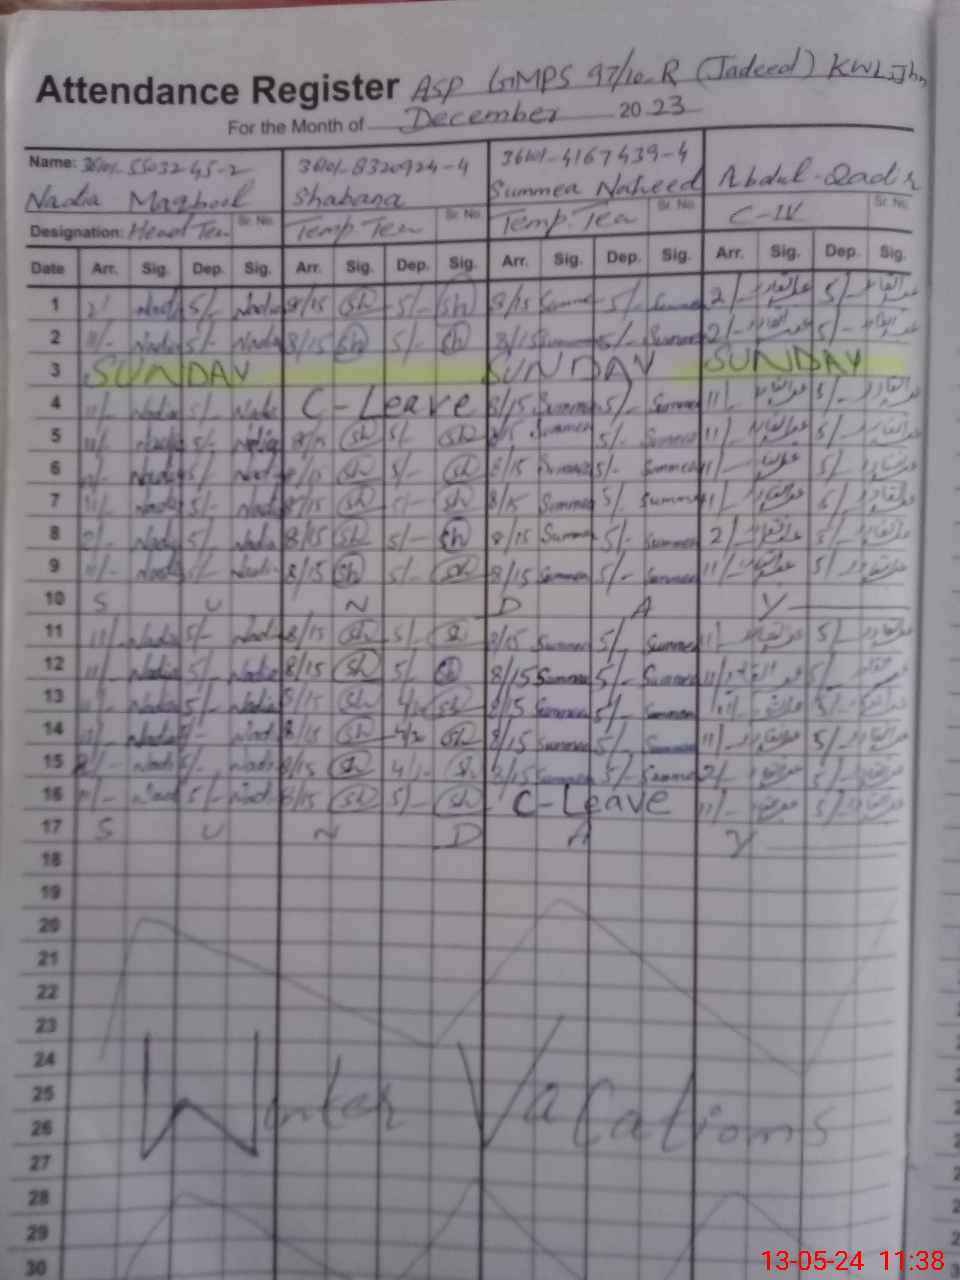 Attendance Register ASP GMPS 97/10-R (Jadeed) KWL, Jhn
For the Month of December 2023
Name: 36101-55032 45-2 36101-8320924-4 36101-4167439-4
Nadia Maqbool Shabana Summea Naheed Abdul-Qadir
Designation: Head Tea Sr. No. Temp Tea Sr. No. Temp. Tea Sr. No. C-IV Sr. No.
Date Arr. Sig. Dep. Sig. Arr. Sig. Dep. Sig. Arr. Sig. Dep. Sig. Arr. Sig. Dep. Sig.
1 Nadi 5/- Nadia 8/15 Sh 5/- Sh 8/15 Summe 5/- Summea 2/- عبدالقادر 5/- عبدالقادر
2 11/- Nadia 5/- Nadia 8/15 Sh 5/- Sh 8/15 Summea 5/- Summea 2/- عبدالقادر 5/- عبدالقادر
3 SUNDAY SUNDAY SUNDAY
4 11/- Nadia 5/- Nadi C-Leave 8/15 Summea 5/- Summea 11/- عبدالقادر 5/- عبدالقادر
5 11/- Nadia 5/- Nadia 8/15 Sh 5/- Sh 8/15 Summea 5/- Summea 11/- عبدالقادر 5/- عبدالقادر
6 Nadia 5/- Nadi 8/15 Sh 5/- Sh 8/15 Summea 5/- Summea 11/- عبدالقادر 5/- عبدالقادر
7 11/- Nadi 5/- Nadi 8/15 Sh 5/- Sh 8/15 Summe 5/- Summea 11/- عبدالقادر 5/- عبدالقادر
8 2/- Nadi 5/- Nadia 8/15 Sh 5/- Sh 8/15 Summea 5/- Summea 2/- عبدالقادر 5/- عبدالقادر
9 11/- Nadi 5/- Nadi 8/15 Sh 5/- Sh 8/15 Summea 5/- Summea 11/- عبدالقادر 5/- عبدالقادر
10 S U N D A Y
11 11/- Nadi 5/- Nadi 8/15 Sh 5/- S 8/15 Summea 5/- Summea 11/- عبدالقادر 5/- عبدالقادر
12 11/- Nadia 5/- Nadia 8/15 Sh 5/- Sh 8/15 Summea 5/- Summea 11/- عبدالقادر 5/- عبدالقادر
13 11/- Nadia 5/- Nadia 8/15 Sh Sh 8/15 Summea 5/- Summea عبدالقادر 5/- عبدالقادر
14 11/- Nadia 5/- Nadi 8/15 Sh Sh 8/15 Summea 5/- Summea 11/- عبدالقادر 5/- عبدالقادر
15 Nadi 5/- Nadi 8/15 Sh S 8/15 Summea 5/- Summea 2/- عبدالقادر 5/- عبدالقادر
16 11/- Nadi 5/- Nadi 8/15 Sh 5/- Sh C-Leave 11/- عبدالقادر 5/- عبدالقادر
17 S U N D A Y
18
19
20
21
22
23
24
25 Winter Vacations
26
27
28
29
30
13-05-24 11:38